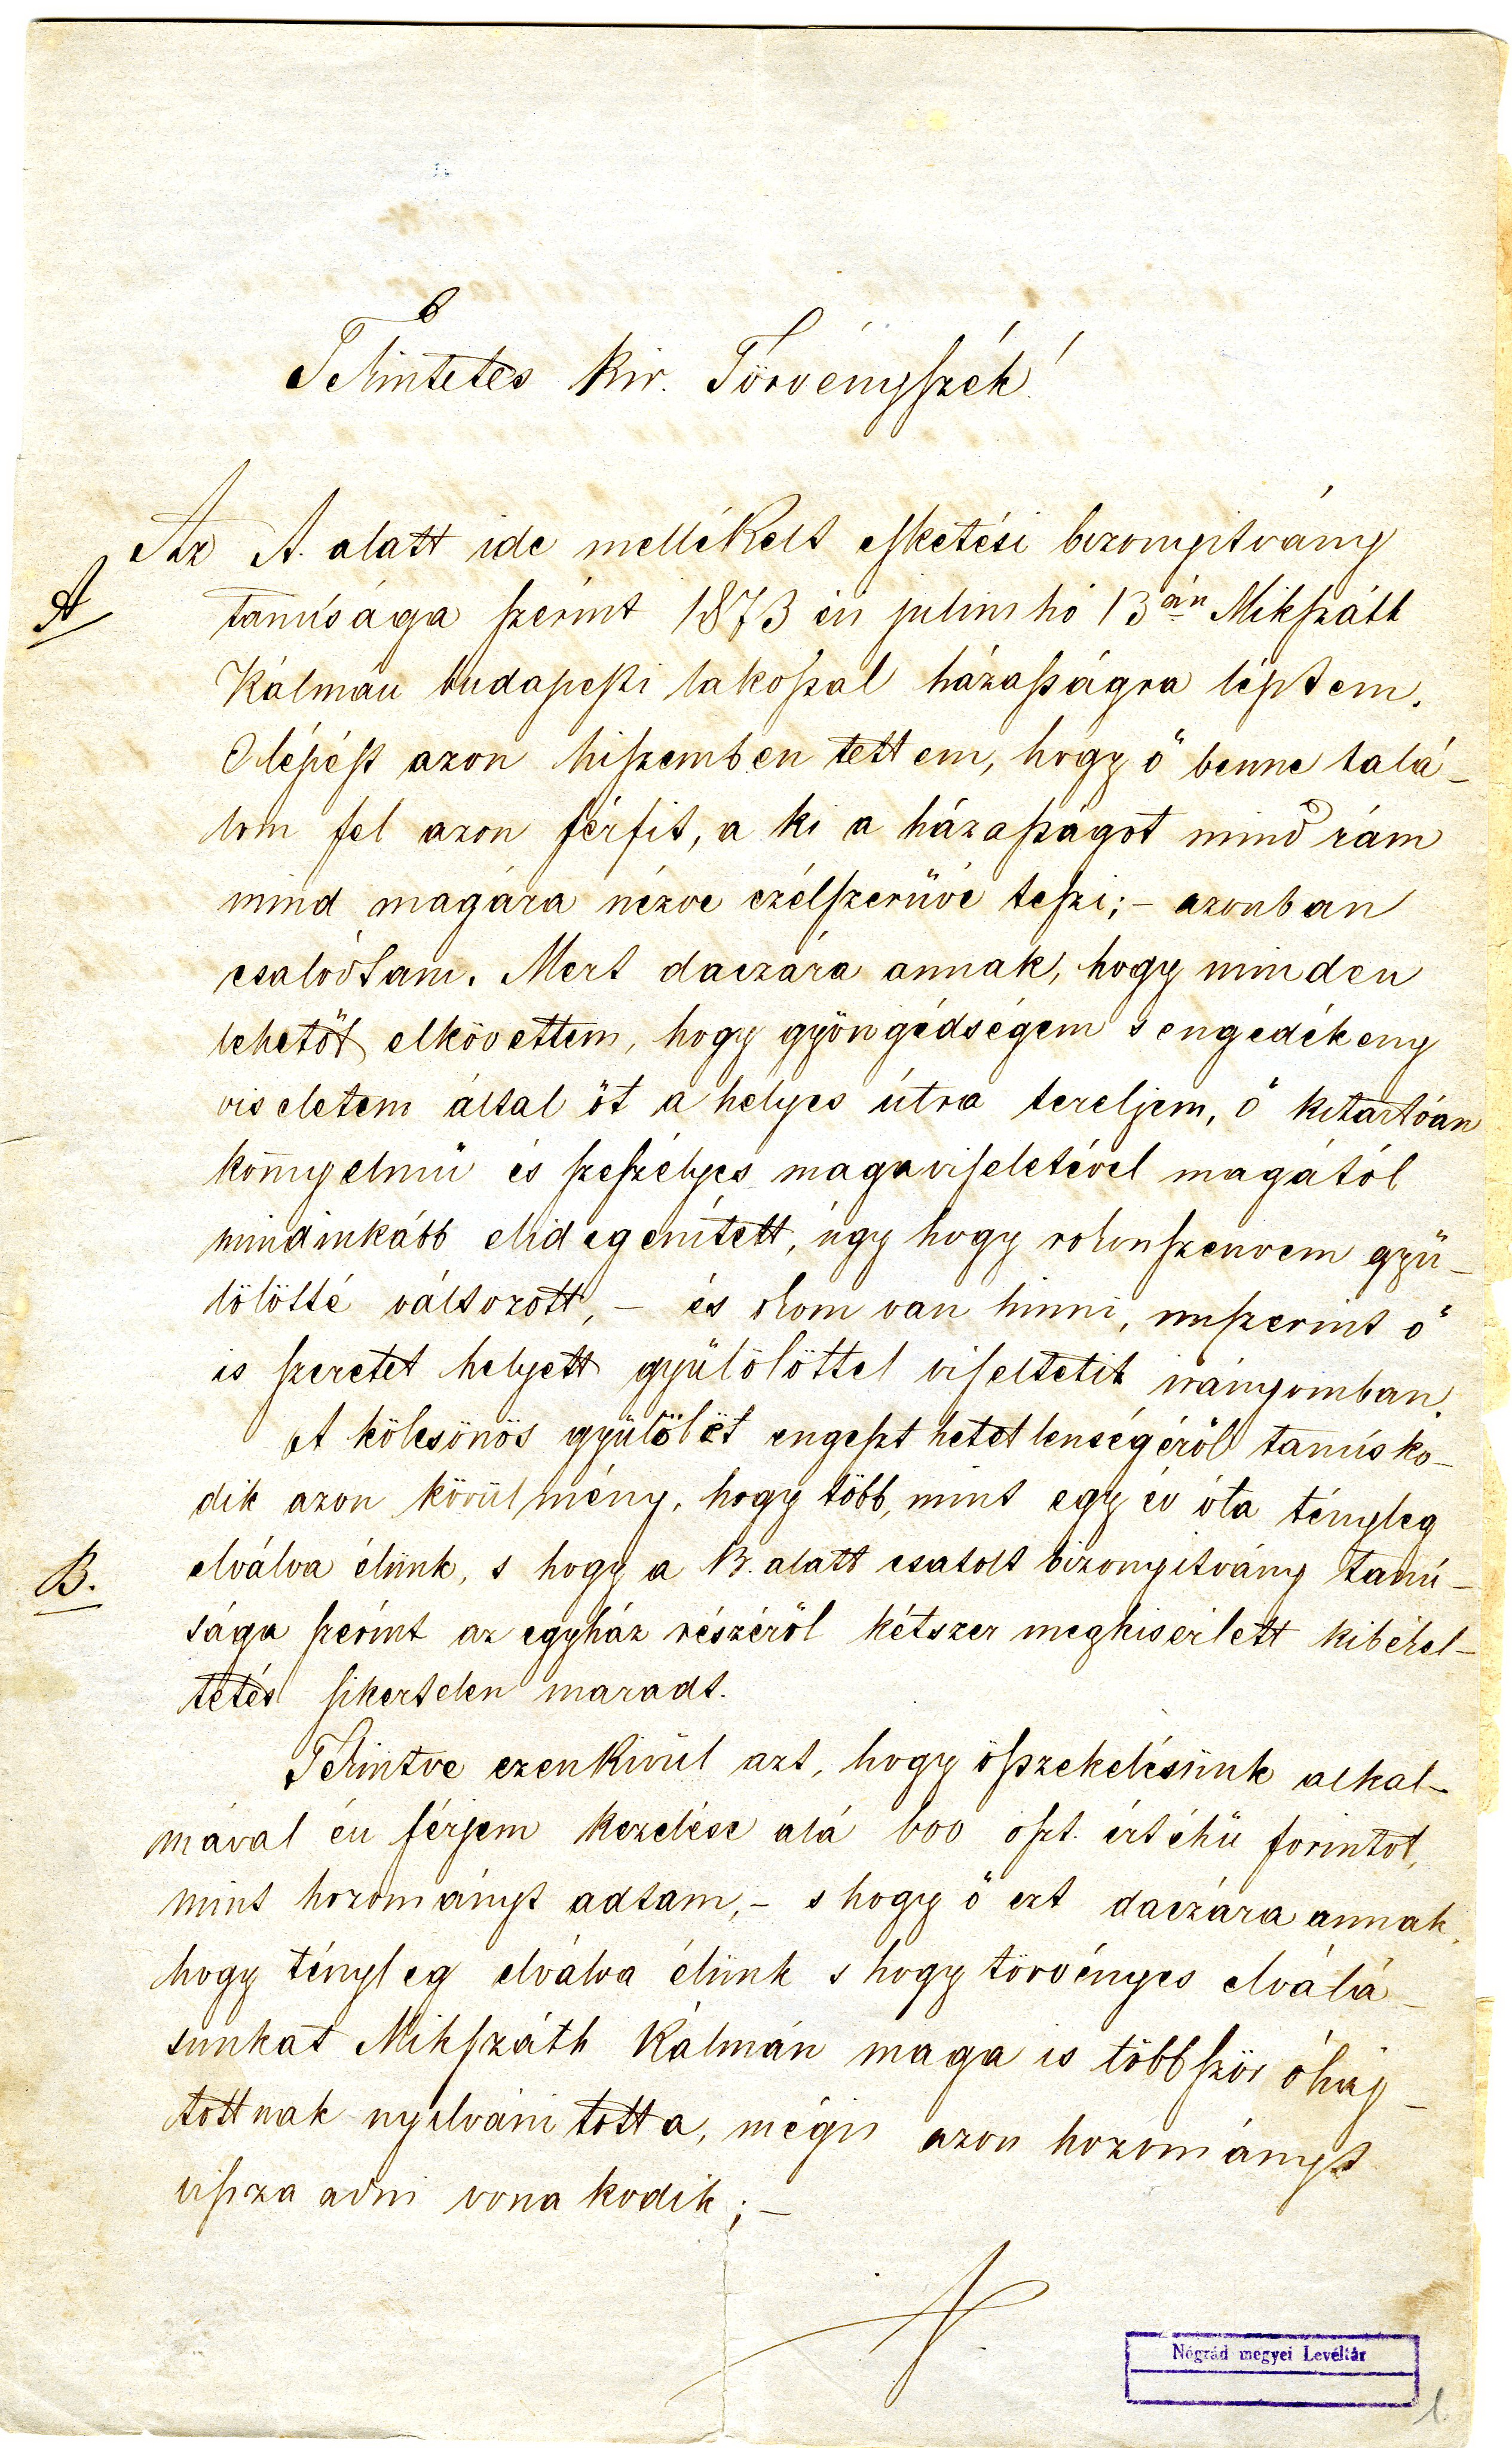 Tekintetes kir. Törvényszék!
Az A. alatt ide mellékelt esketési bizonyitvány
A
tanúsága szerint 1873 év julius hó 13án Mikszáth
Kálmán budapesti lakossal házasságra léptem.
E lépést azon hiszemben tettem, hogy ő benne talá-
lom fel azon férfit, a ki a házasságot mind rám
mind magára nézve czélszerüvé teszi; - azonban
csalódtam. Mert daczára annak, hogy minden
lehetőt elkövettem, hogy gyöngédségem s engedékeny
viseletem által őt a helyes útra tereljem, ő kitartóan
könnyelmü és szeszélyes magaviseletével magától
mindinkább elidegenített, úgy hogy rokonszenvem gyü-
lölötté változott, - és okom van hinni, miszerint ő
is szeretet helyett gyülölöttel viseltetik irányomban.
A kölcsönös gyülölet engesthetetlenségéről tanúsko-
dik azon körülmény, hogy több, mint egy év óta tényleg
B.
elválva élünk, s hogy a B. alatt csatolt bizonyitvány tanú-
sága szerint az egyház részéről kétszer megkisérlett kibékel-
tetés sikertelen maradt.
Tekintve ezenkivül azt, hogy összekelésünk alkal-
mával én férjem kezelése alá 600 oszt. értékü forintot,
mint hozományt adtam, - s hogy ő ezt daczára annak,
hogy tényleg elválva élünk s hogy törvényes elválá-
sunkat Mikszáth Kálmán maga is többször óhaj-
tottnak nyilvánitotta, mégis azon hozományt
vissza adni vonakodik; -
Nógrád megyei Levéltár
1